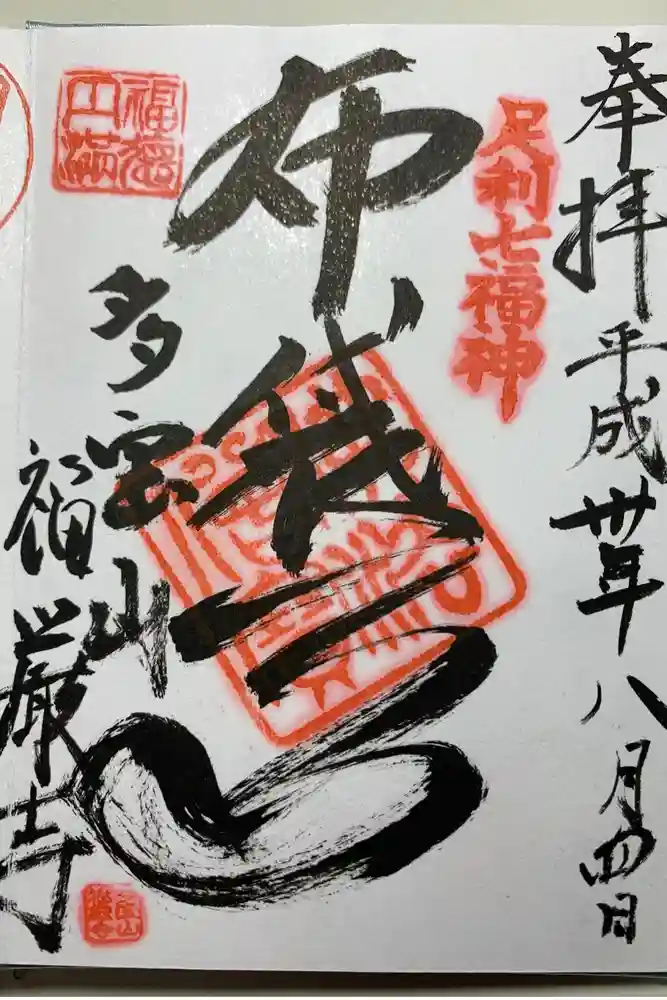 奉拝 平成卅年八月四日
足利七福神
布袋
福徳
円満
多宝山
福厳寺